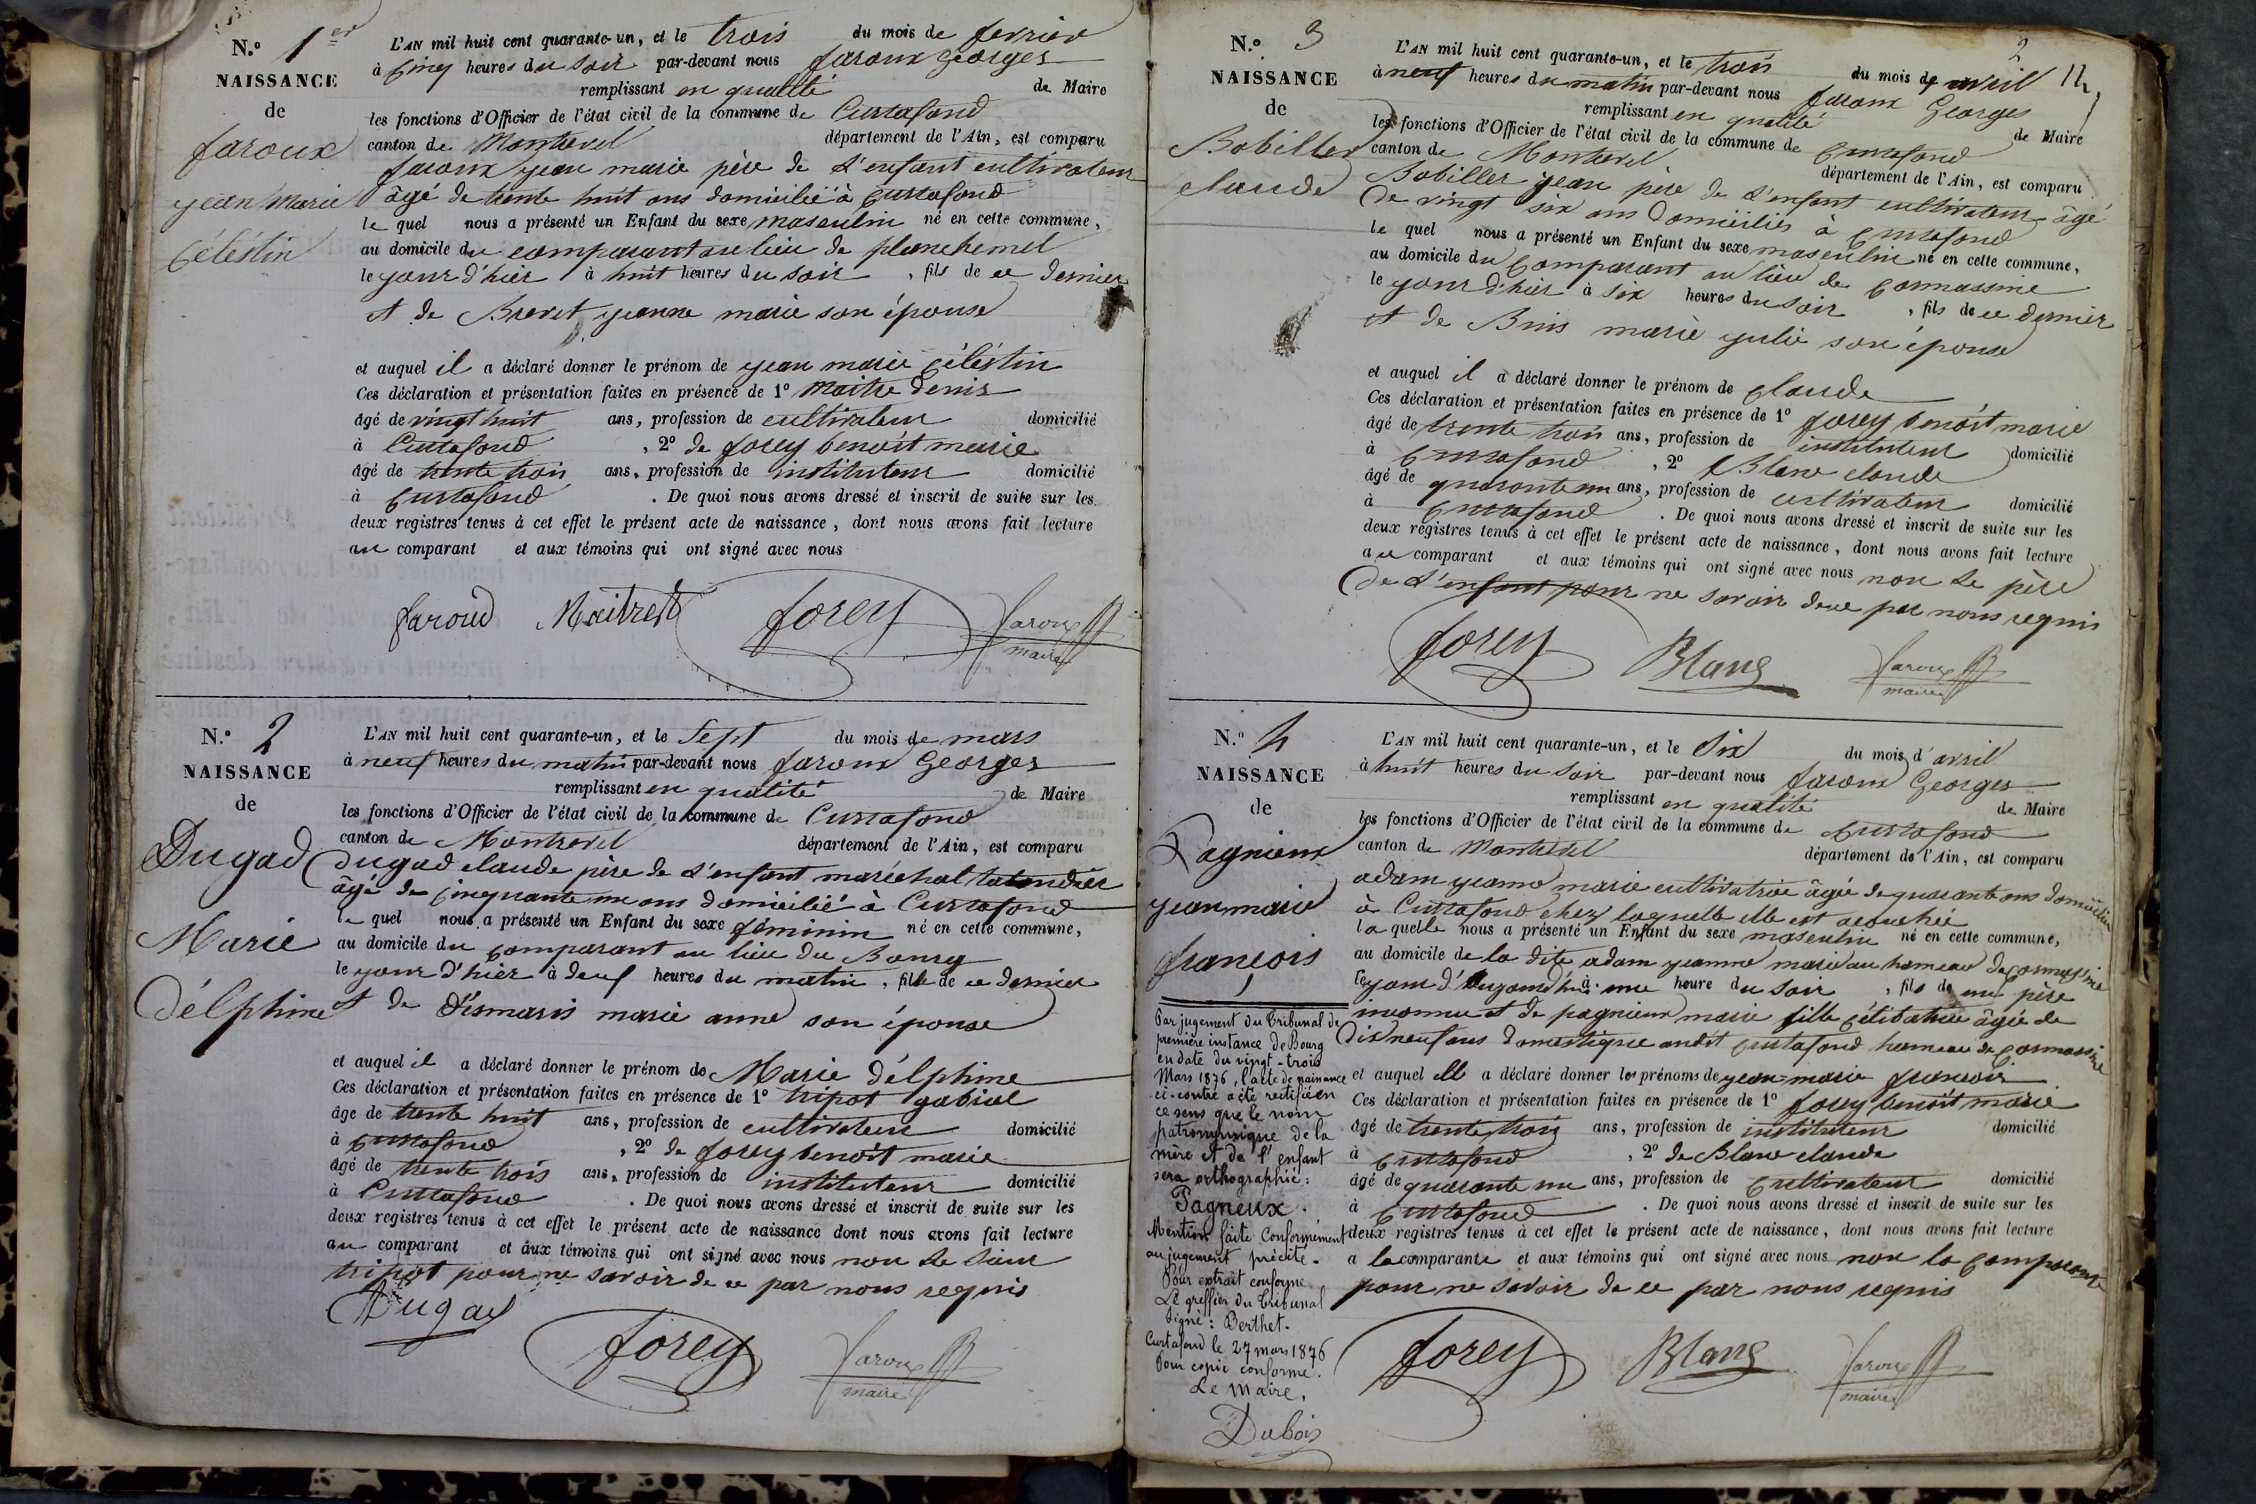 N.° 1er
NAISSANCE
de
faroux
jean Marie
Célestin
L'AN mil huit cent quarante-un, et le trois du mois de fevrier
à Cinq heures du soir par-devant nous faroux Georges
remplissant en qualité de Maire
les fonctions d'Officier de l'état civil de la commune de Curtafond
canton de Montrevel département de l'Ain, est comparu
faroux jean marie père de L'enfant cultivateur
âgé de trente huit ans domicilié à Curtafond
le quel nous a présenté un Enfant du sexe masculin né en cette commune,
au domicile du comparant au lieu de planchemel
le jour d'hier à huit heures du soir, fils de ce dernier
et de Brevet jeanne marie son épouse
et auquel il a déclaré donner le prénom de jean marie Célestin
Ces déclaration et présentation faites en présence de 1° Maitre denis
âgé de vingt huit ans, profession de cultivateur domicilié
à Curtafond, 2° de forey benoit marie
âgé de trente trois ans, profession de instituteur domicilié
à Curtafond. De quoi nous avons dressé et inscrit de suite sur les
deux registres tenus à cet effet le présent acte de naissance, dont nous avons fait lecture
au comparant et aux témoins qui ont signé avec nous
faroud Maitre forey faroux
maire
N.° 2
NAISSANCE
de
Dugad
Marie
délphine
L'AN mil huit cent quarante-un, et le Sept du mois de mars
à neuf heures du matin par-devant nous faroux Georges
remplissant en qualité de Maire
les fonctions d'Officier de l'état civil de la commune de Curtafond
canton de Montrevel département de l'Ain, est comparu
dugad claude père de L'enfant maréchal
âgé de Cinquante un ans domicilié à Curtafond
le quel nous a présenté un Enfant du sexe féminin né en cette commune,
au domicile du comparant au lieu du Bourg
le jour d'hier à deuf heures du matin, fille de ce dernier
et de désmaris marie anne son épouse
et auquel il a déclaré donner le prénom de Marie délphine
Ces déclaration et présentation faites en présence de 1° tripot gabriel
âge de trente huit ans, profession de cultivateur domicilié
à Curtafond, 2° de forey benoit marie
âgé de trente trois ans, profession de instituteur domicilié
à Curtafond. De quoi nous avons dressé et inscrit de suite sur les
deux registres tenus à cet effet le présent acte de naissance dont nous avons fait lecture
au comparant et aux témoins qui ont signé avec nous non Le Sieur
tripot pour ne savoir de ce par nous requis
Dugad forey faroux
maire
2
N.° 3
NAISSANCE
de
Bobiller
claude
L'AN mil huit cent quarante-un, et le trois du mois de avril
à neuf heures du matin par-devant nous faroux Georges
remplissant en qualité de Maire
les fonctions d'Officier de l'état civil de la commune de Curtafond
canton de Montrevel département de l'Ain, est comparu
Bobiller jean père de L'enfant cultivateur âgé
de vingt six ans domiciliés à Curtafond
le quel nous a présenté un Enfant du sexe masculin né en cette commune,
au domicile du Comparant au lieu de Cormassine
le jour d'hier à six heures du soir, fils de ce dernier
et de Buis marie julie son épouse
et auquel il a déclaré donner le prénom de Claude
Ces déclaration et présentation faites en présence de 1° forey benoit marie
âgé de trente trois ans, profession de instituteur domicilié
à Curtafond, 2° Blanc claude
âgé de quarante un ans, profession de cultivateur domicilié
à Curtafond. De quoi nous avons dressé et inscrit de suite sur les
deux registres tenus à cet effet le présent acte de naissance, dont nous avons fait lecture
au comparant et aux témoins qui ont signé avec nous non Le père
de L'enfant pour ne savoir de ce par nous requis
forey Blanc faroux
maire
N.° 4
NAISSANCE
de
Pagnieux
jean marie
françois
L'AN mil huit cent quarante-un, et le Six du mois d'avril
à huit heures du soir par-devant nous faroux Georges
remplissant en qualité de Maire
les fonctions d'Officier de l'état civil de la commune de Curtafond
canton de Montrevel département de l'Ain, est comparu
adam jeanne marie cultivatrice âgée de quarante ans domiciliée
à Curtafond chez laquelle elle est acouchée
la quelle nous a présenté un Enfant du sexe masculin né en cette commune,
au domicile de la dite adam jeanne marie au hameau de Cormassine
le jour d'aujourd'hui à une heure du soir, fils de un père
inconnu et de pagnieux marie fille célibataire âgée de
Dix neuf ans domestique audit Curtafond hameau de Cormassine
et auquel elle a déclaré donner les prénoms de jean-marie françois
Ces déclaration et présentation faites en présence de 1° forey benoit marie
âgé de trente trois ans, profession de instituteur domicilié
à Curtafond, 2° de Blanc claude
âgé de quarante un ans, profession de Cultivateur domicilié
à Curtafond. De quoi nous avons dressé et inscrit de suite sur les
deux registres tenus à cet effet le présent acte de naissance, dont nous avons fait lecture
a la comparante et aux témoins qui ont signé avec nous non la Comparante
pour ne savoir de ce par nous requis
forey Blanc faroux
maire
Par jugement du Tribunal de
première instance de Bourg
en date du vingt-trois
Mars 1876, l'acte de naissance
ci-contre a été rectifié en
ce sens que le nom
patronymique de la
mère et de l'enfant
sera orthographié:
Pagneux.
Mention faite Conformément
au jugement précité.
Pour extrait conforme
Le greffier du Tribunal
Signé: Berthet.
Curtafond le 27 mars 1876
Pour copie conforme.
Le Maire,
Dubois